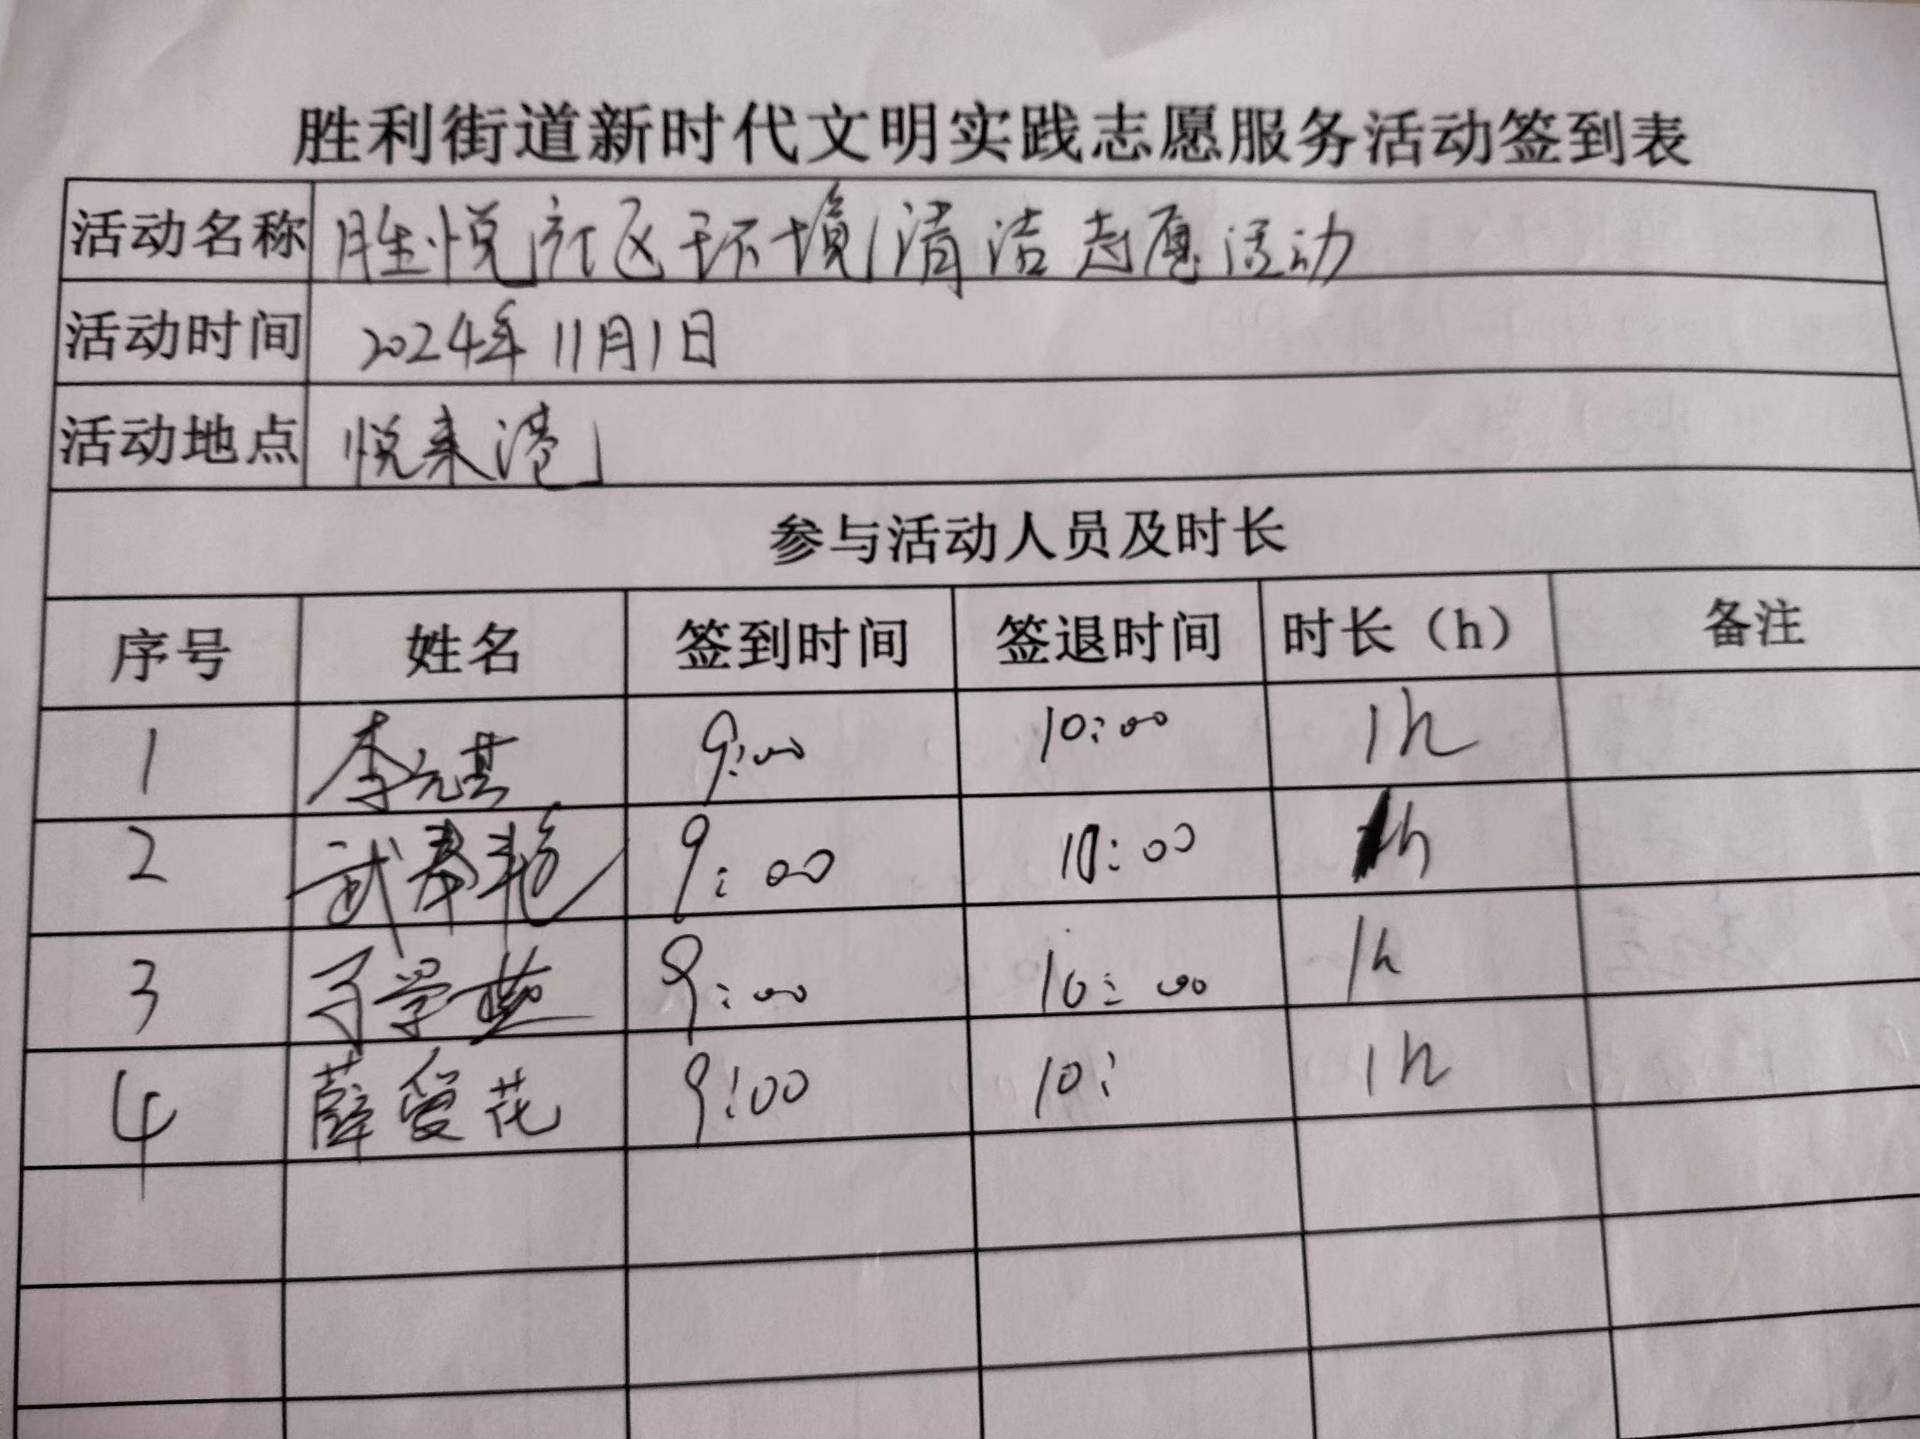 胜利街道新时代文明实践志愿服务活动签到表
活动名称 胜悦社区环境清洁志愿活动
活动时间 2024年11月1日
活动地点 悦来港
参与活动人员及时长
序号 姓名 签到时间 签退时间 时长（h） 备注
1 李元芸 9:00 10:00 1h
2 武春艳 9:00 10:00 1h
3 于学燕 9:00 10:00 1h
4 薛爱花 9:00 10: 1h